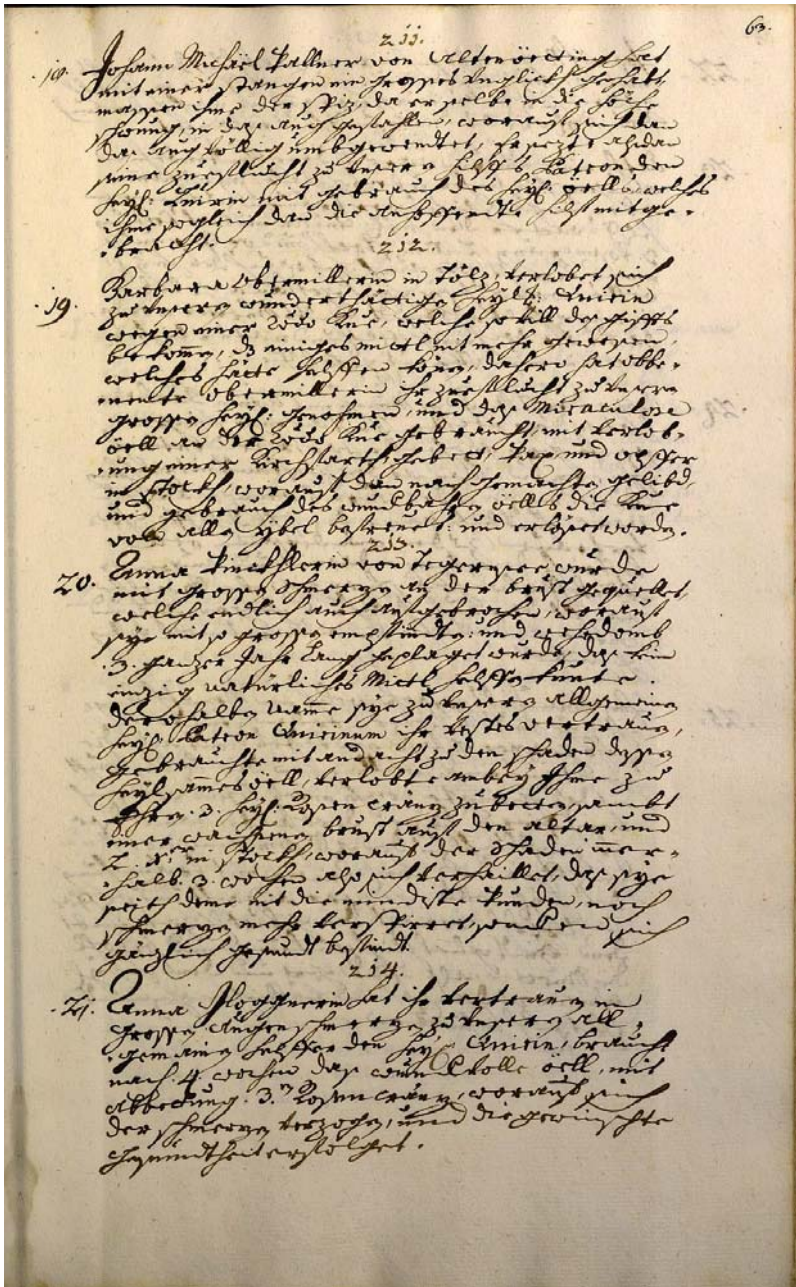 63.
211.
18. Johann Michäel Pallner von Altenöetting hat
mit einer stangen ein grosses unglickh gehabt,
massen ihme der spiz, da er selbe in die höche
schwung, in das aug gefahlen, worauf sich dan
das aug völlig umbgewendtet, Er sezte alsdan
seine zuefluecht zu unsern hilffs Patron den
heyl: Quirin mit gebrauch des heyl: Oell, welches
ihme sogleich dan die anhoffente hilf mitge-
bracht.
212.
19. Barbara Obermillerin in Tölz, verlobet sich
zu unsern wunderthättigen heyl: Quirin
wegen einer Kue, welche so vill des giffts
bekomen, daß einiges mittl nit mehr gewesen,
welches hätte helffen könen, dahero hat obbe-
nente Obermillerin ihr zuefluecht zu unsern
grossen heyl: genohmen, und das Miraculose
öell an der Kue gebraucht, mit verlob-
ung einer Kirchfarth, gebett, und opffer
in stockh, worauf dan nach gemachten gelibd,
und gebrauch des wundbahren öells die Kue
von allen ybel befreyet: und erlöset worden.
213.
20. Anna von Tegernsee wurde
mit grossen schmerzen an der brust gequellet,
welche endlich auch aufgebrochen, worauf
sye mit so grossen und wehedomb
3. ganzer Jahr lang geplaget wurde, das kein
einzig natürliches Mittl helffen kunte.
derohalben name sye zu unsern allgemeinen
heyl: Patron Quirinum ihr vestes vertrauen,
gebrauchte mit andacht zu den schaden dessen
heylsammes öell, verlobte anbey Ihme zu
Ehren 3. heyl: Rosen cränz zu betten, sambt
einer wachsenen brust auf den altar, und
2. xr in stockh, worauf der schaden inner-
halb 3. wochen also sich verhaillet, das sye
seith deme nit die mindiste wunden, noch
schmerzen mehr verspirret, sondern sich
gänzlich gesundt befindt.
214.
21. Anna Ploggnerin hat ihr vertrauen in
grossen augenschmerzen zu unsern all-
gemainen helffer den heyl: Quirin, braucht
nach 4. wochen das wundervolle öell, mit
abbettung 3. Rosencränz, worauf sich
der schmerzen verzogen, und die gewinschte
gesundtheit erfolget.